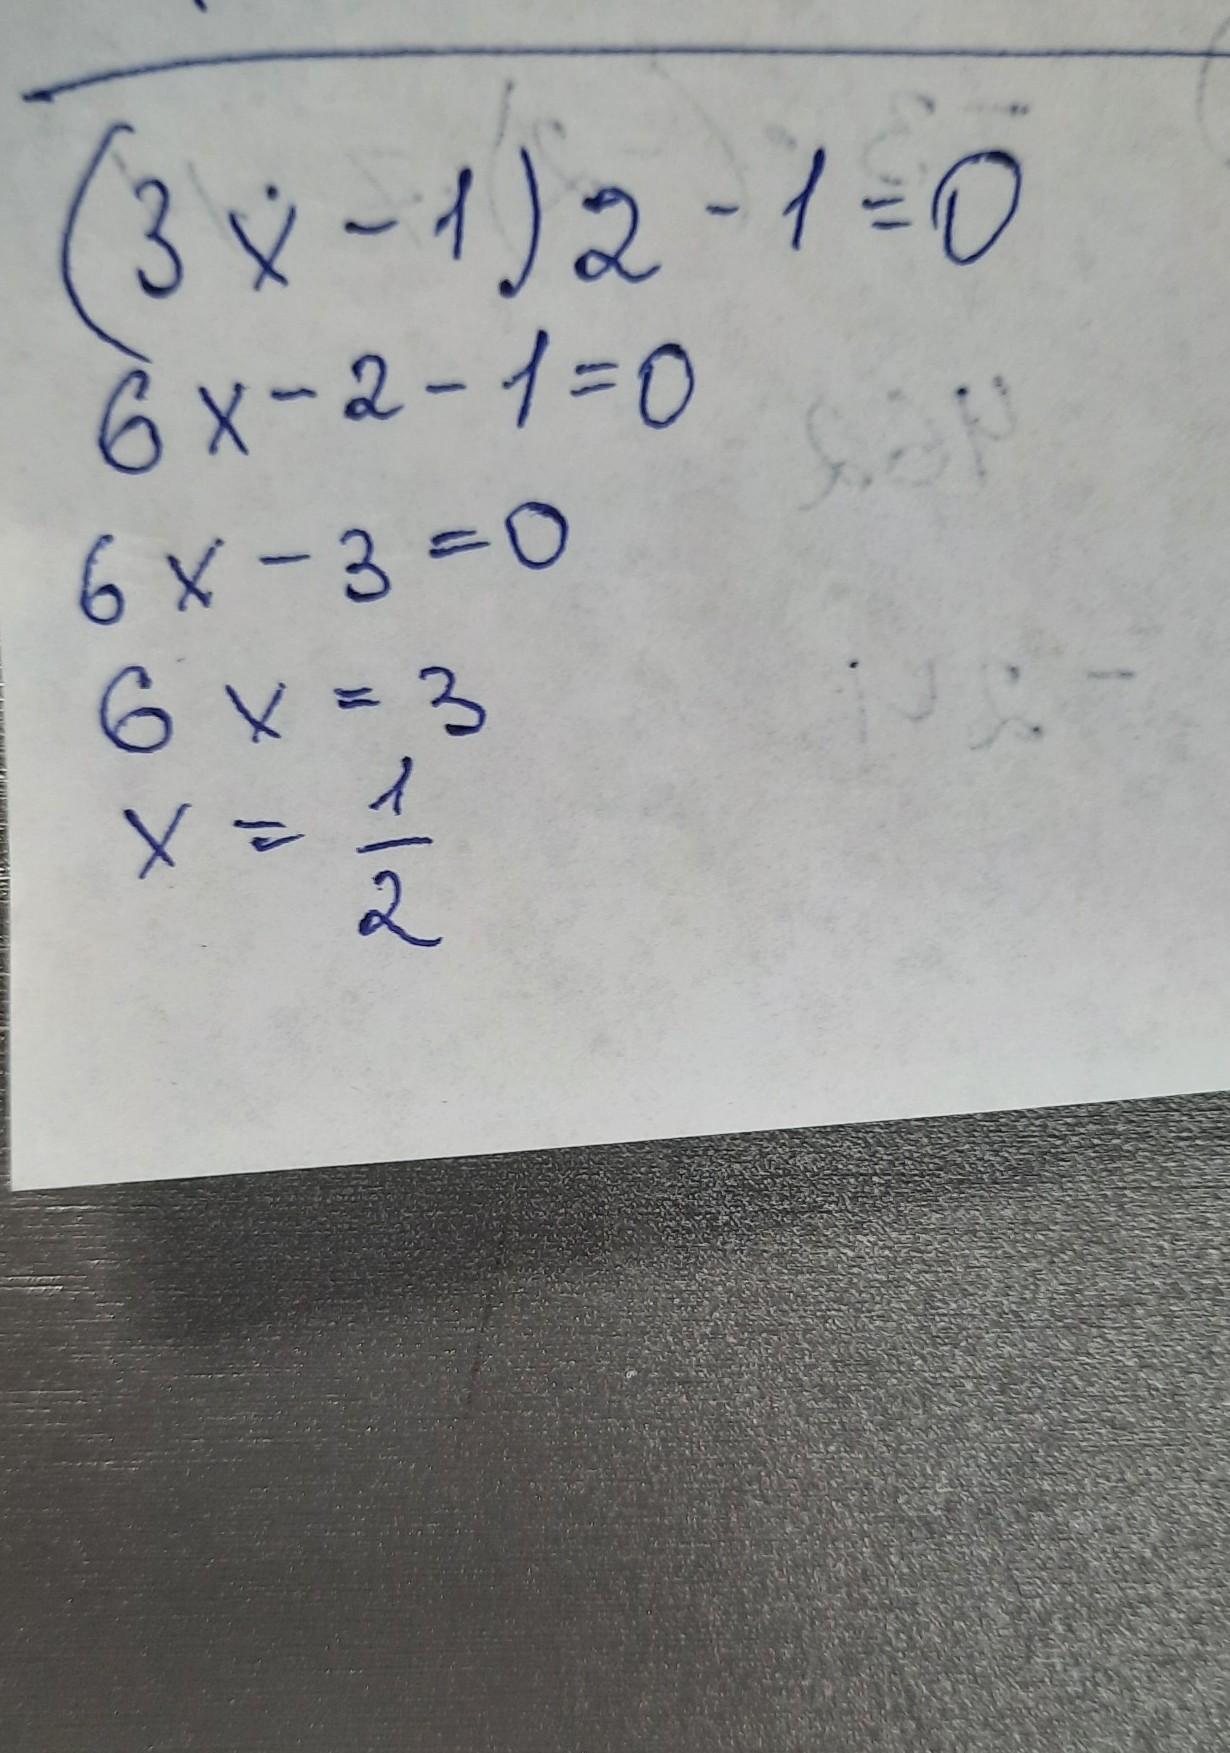 (3x-1)2-1=0
6x-2-1=0
6x-3=0
6x=3
x=1/2